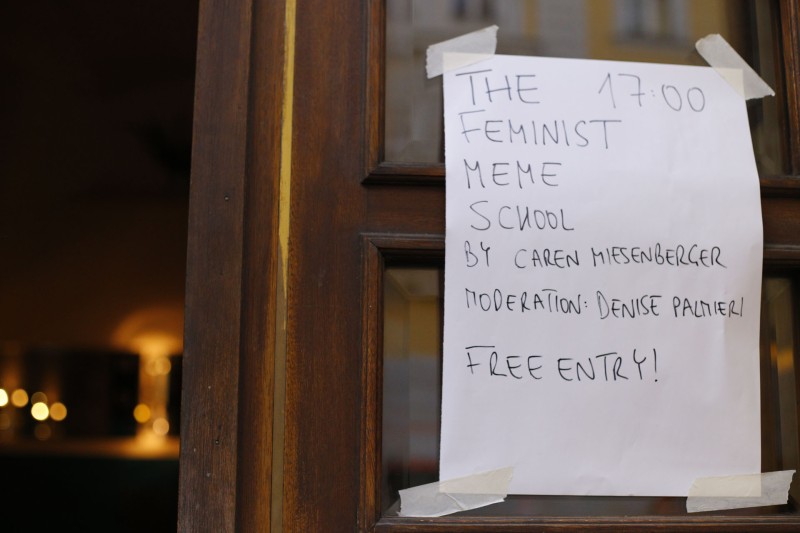 THE 17:00
FEMINIST
MEME
SCHOOL
BY CAREN MIESENBERGER
MODERATION: DENISE PALMIERI
FREE ENTRY!